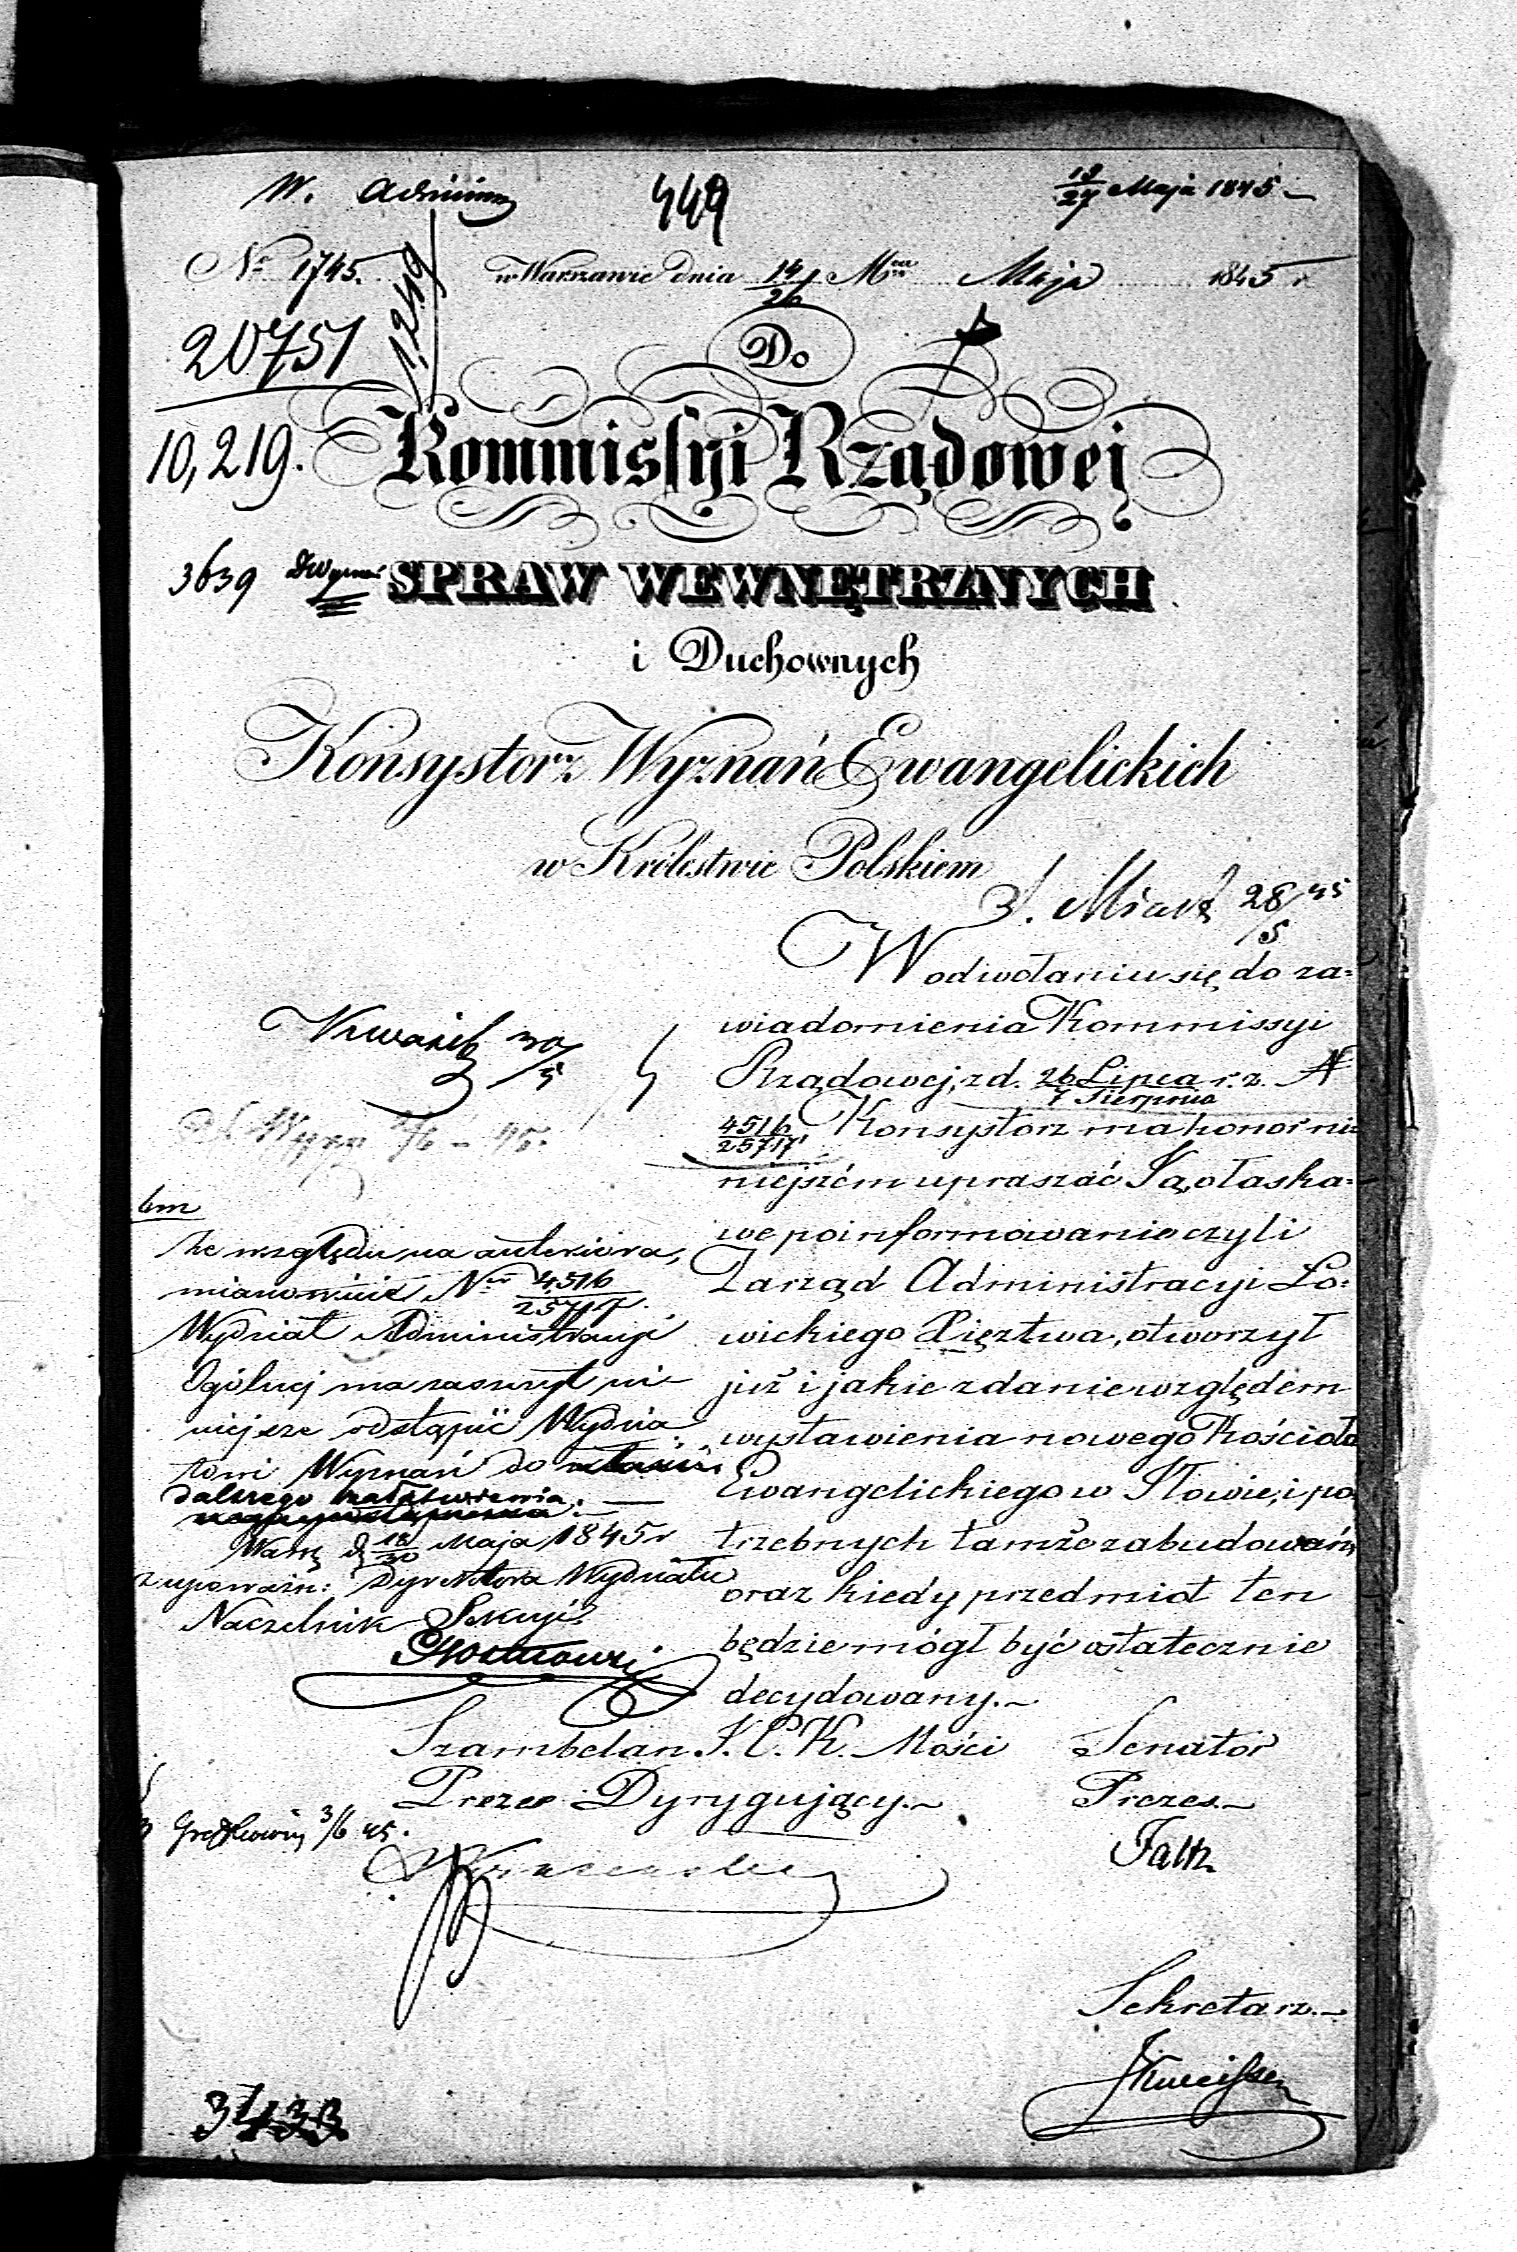 W. Admin
449
15/27 Maja 1845
Nr 1745.
w Warszawie dnia 14/26 Mca Maja 1845 r
20751
1249
Do
10,219.
Kommissyi Rządowej
3639
SPRAW WEWNĘTRZNYCH
i Duchownych
Konsystorz Wyznań Ewangelickich
w Królestwie Polskiem
28/5 45
W odwołaniu się do za=
wiadomienia Kommissyi
Rządowej, z d. 26 Lipca/7 Sierpnia r. z. N
4516/25717 Konsystorz ma honor ni=
niejszém upraszać Ją, o łaska=
we poinformowanie czyli
Zarząd Administracyi Ło=
wickiego Xięztwa, otworzył
już i jakie zdanie względem
wystawienia nowego Kościoła
Ewangelickiego w Iłowie, i po
trzebnych tamże zabudowań,
oraz kiedy przedmiot ten
będzie mógł być ostatecznie
decydowany.~
30/5
Ze względu na anteriora,
mianowicie Nr 4516/25717.
Wydział Administracyi
Ogólnej ma zaszczyt ni-
niejsze odstąpić Wydzia
łowi Wyznań do
dalszego załatwienia.
Warsz d 18/30 Maja 1845 r
z upoważn: Dyrektora Wydziału
Naczelnik Sekcyi
Szambelan J. C. K. Mości
Prezes Dyrygujący.~
Senator
Prezes.~
Faltz
3/6 45.
Sekretarz.~
3433